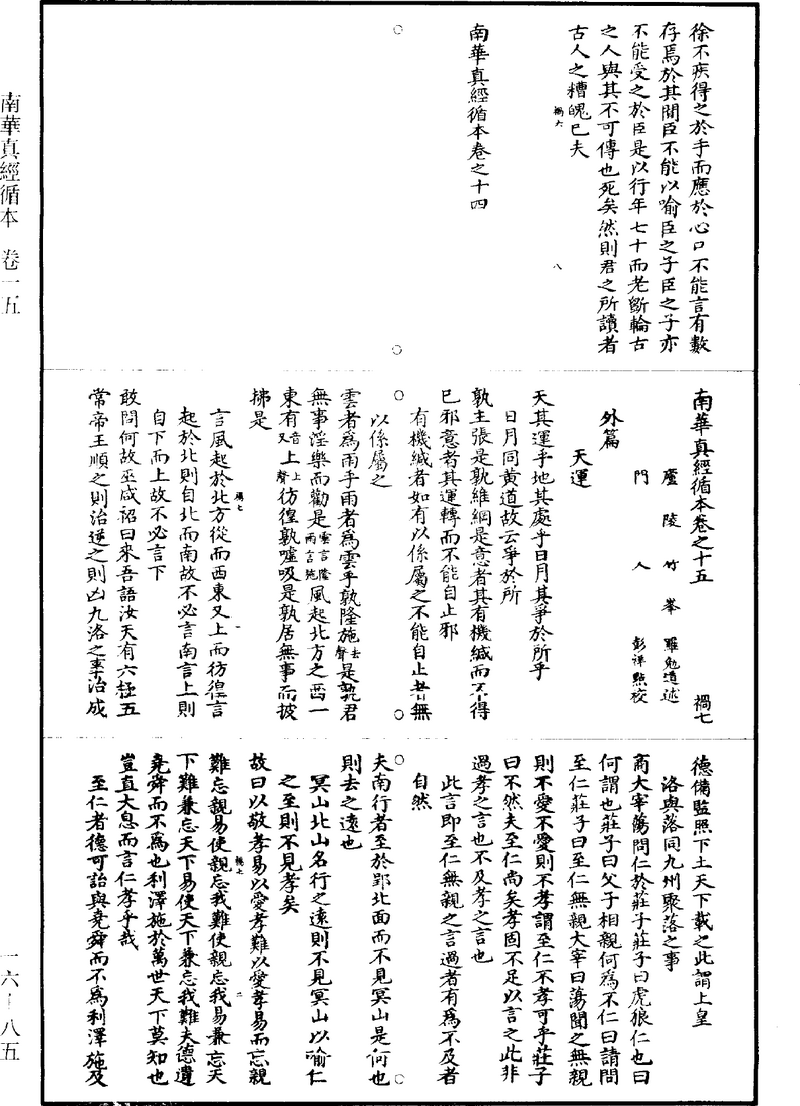 徐不疾得之於手而應於心口不能言有數
存焉於其間臣不能以喻臣之子臣之子亦
不能受之於臣是以行年七十而老斲輪古
之人與其不可傳也死矣然則君之所讀者
古人之糟魄已夫
禍六
八
南華真經循本卷之十四
南華真經循本卷之十五
禍七
廬陵竹峯羅勉道述
門人彭祥點校
外篇
天運
天其運乎地其處乎日月其爭於所乎
日月同黃道故云爭於所
孰主張是孰維綱是意者其有機緘而不得
已邪意者其運轉而不能自止邪
有機緘者如有以係屬之不能自止者無
以係屬之
雲者為雨乎雨者為雲乎孰隆施去聲是孰君
無事淫樂而勸是雲言隆雨言施風起北方之西一
東有又音上上聲彷徨孰噓吸是孰居無事而披
拂是
禍七
一
言風起於北方從而西東又上而彷徨言
起於北則自北而南故不必言南言上則
自下而上故不必言下
敢問何故巫咸祒曰來吾語汝天有六極五
常帝王順之則治逆之則凶九洛之事治成
德備監照下土天下載之此謂上皇
洛與落同九州聚落之事
商大宰蕩問仁於莊子莊子曰虎狼仁也曰
何謂也莊子曰父子相親何為不仁曰請問
至仁莊子曰至仁無親大宰曰蕩聞之無親
則不愛不愛則不孝謂至仁不孝可乎莊子
曰不然夫至仁尚矣孝固不足以言之此非
過孝之言也不及孝之言也
此言即至仁無親之言過者有為不及者
自然
夫南行者至於郢北面而不見冥山是何也
則去之遠也
冥山北山名行之遠則不見冥山以喻仁
之至則不見孝矣
故曰以敬孝易以愛孝難以愛孝易而忘親
難忘親易使親忘我難使親忘我易兼忘天
禍七
二
下難兼忘天下易使天下兼忘我難夫德遺
堯舜而不為也利澤施於萬世天下莫知也
豈直大息而言仁孝乎哉
至仁者德可詒與堯舜而不為利澤施及
南華真經循本 卷一五
一六－八五